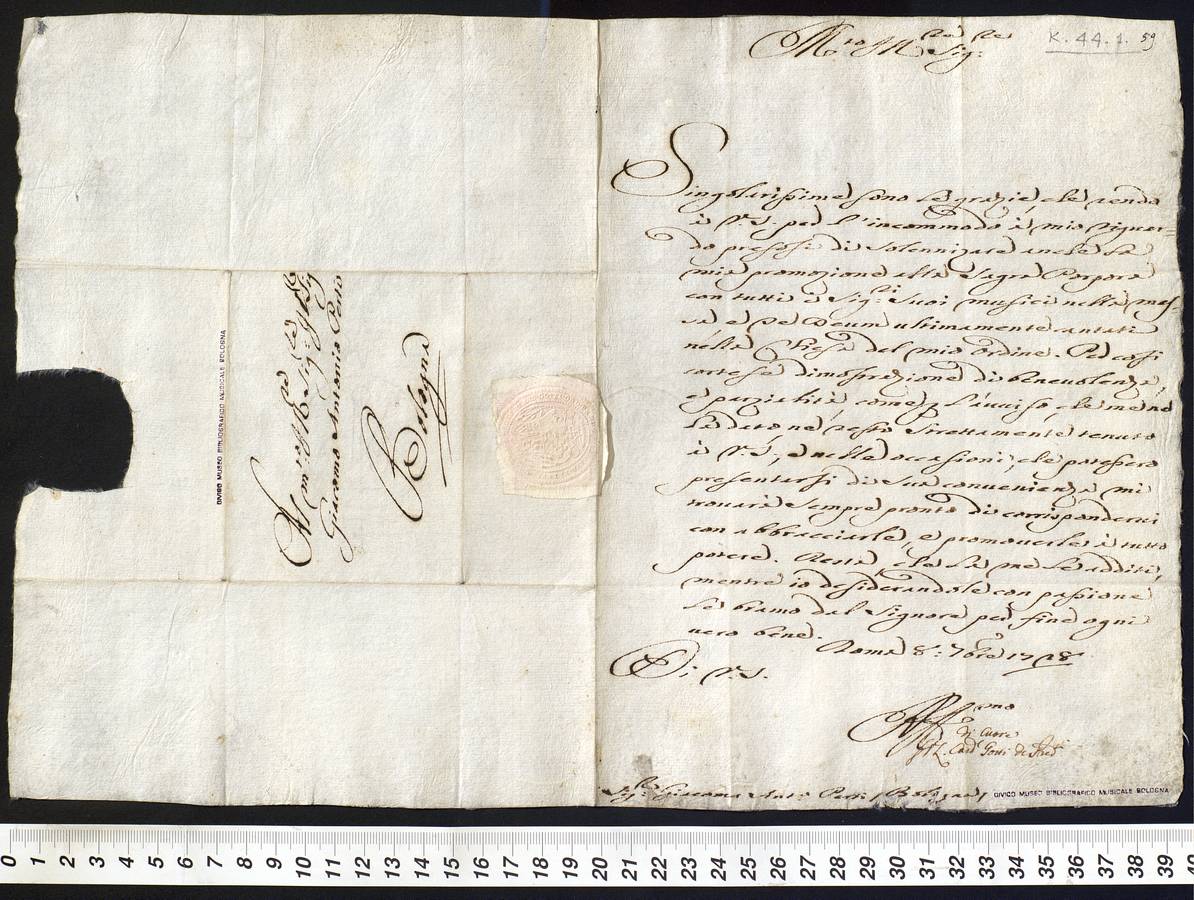 K. 44. 1. 59
M.to Ill.re Sig.re
Singolarissime sono le grazie che rendo
à V.S. per l'incommodo à mio riguar-
do presosi di solennizare anche la
mia promozione alla Sagra Porpora
con tutti i Sig.ri suoi musici nella mes-
sa e Te Deum ultimamente cantati
nella Chiesa del mio ordine. Per così
cortese dimostrazione di benevolenza,
e parzialità come l'avviso che me ne
hà dato ne resto strettamente tenuto
à V.S., e nelle occasioni, che potessero
presentarsi di sua convenienza mi
trovarà sempre pronto di corrisponderci
con abbracciarle, e promoverle à tutto
potere. Resta, che Ella me le additi,
mentre io desiderandole con passione
le bramo dal Signore per fine ogni
vero bene. Roma 8: 7bre 1728
Di V.S.
Aff.mo
di Cuore
Card. Gotti de Pred.ri
Sig.r Giacomo Ant.o Perti / Bologna /
CIVICO MUSEO BIBLIOGRAFICO MUSICALE BOLOGNA
Al m.to Ill.re Sig.re
Giacomo Antonio Perti
Bologna
CIVICO MUSEO BIBLIOGRAFICO MUSICALE BOLOGNA
0 1 2 3 4 5 6 7 8 9 10 11 12 13 14 15 16 17 18 19 20 21 22 23 24 25 26 27 28 29 30 31 32 33 34 35 36 37 38 39 40